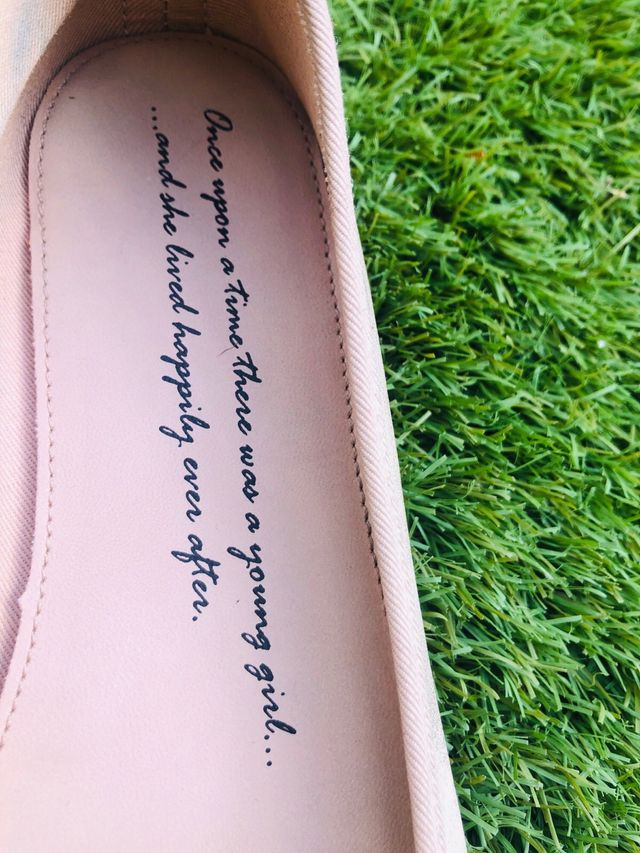 Once upon a time there was a young girl...
...and she lived happily ever after.